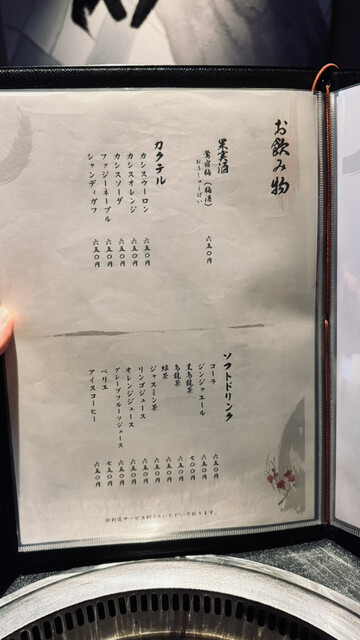 お飲み物
果実酒
鶯宿梅(梅酒) 六五〇円
おうしゅくばい
カクテル
カシスウーロン 六五〇円
カシスオレンジ 六五〇円
カシスソーダ 六五〇円
ファジーネーブル 六五〇円
シャンディガフ 六五〇円
ソフトドリンク
コーラ 六五〇円
ジンジャエール 六五〇円
黒烏龍茶 七〇〇円
烏龍茶 六五〇円
緑茶 六五〇円
ジャスミン茶 六五〇円
リンゴジュース 六五〇円
オレンジジュース 六五〇円
グレープフルーツジュース 六五〇円
ペリエ 七五〇円
アイスコーヒー 六五〇円
※別途サービス料１０％いただいております。